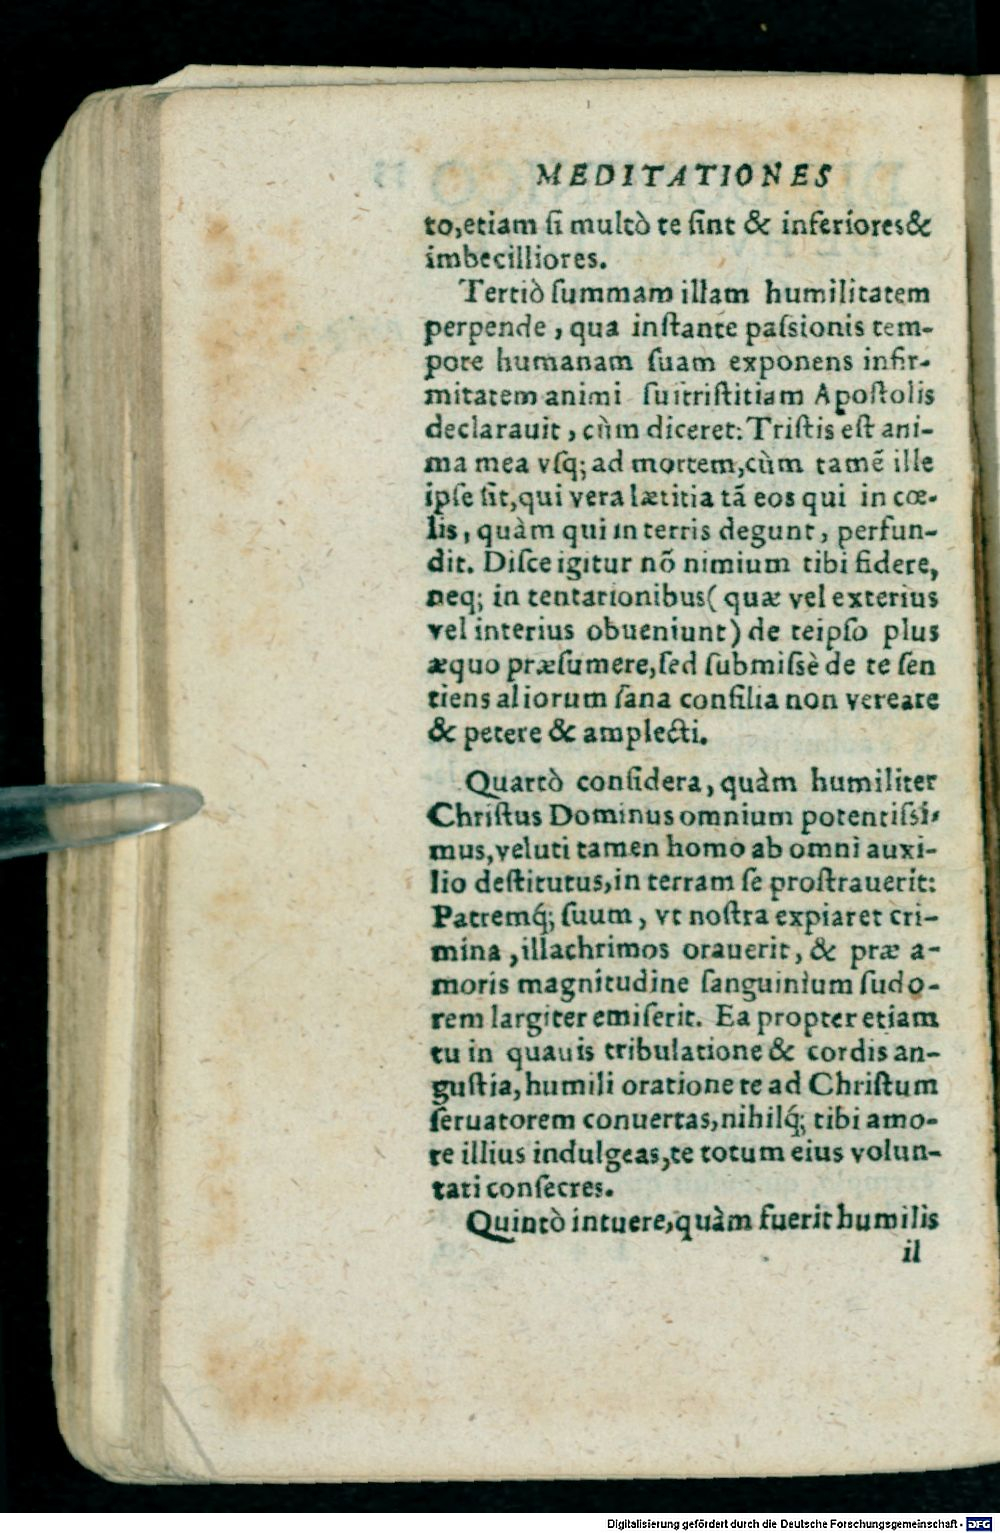 MEDITATIONES
to,etiam ſi multò te ſint & inferiores&
imbecilliores.
Tertiò ſummam illam humilitatem
perpende, qua inſtante paſsionis tem-
pore humanam ſuam exponens infir-
mitatem animi ſui triſtitiam Apoſtolis
declarauit, cùm diceret: Triſtis eſt ani-
ma mea vſq; ad mortem,cùm tamẽ ille
ipſe ſit,qui vera lætitia tã eos qui in cœ-
lis, quàm qui in terris degunt, perfun-
dit. Diſce igitur nõ nimium tibi fidere,
neq; in tentationibus( quæ vel exterius
vel interius obueniunt) de teipſo plus
æquo præſumere,ſed ſubmiſsè de te ſen
tiens aliorum ſana conſilia non vereare
& petere & amplecti.
Quartò conſidera, quàm humiliter
Chriſtus Dominus omnium potentiſsi-
mus,veluti tamen homo ab omni auxi-
lio deſtitutus,in terram ſe proſtrauerit:
Patremq́; ſuum, vt noſtra expiaret cri-
mina, illachrimos orauerit, & præ a-
moris magnitudine ſanguinium ſudo-
rem largiter emiſerit. Ea propter etiam
tu in quauis tribulatione & cordis an-
guſtia, humili oratione te ad Chriſtum
ſeruatorem conuertas,nihilq́; tibi amo-
re illius indulgeas,te totum eius volun-
tati conſecres.
Quintò intuere,quàm fuerit humilis
il
Digitalisierung gefördert durch die Deutsche Forschungsgemeinschaft - DFG